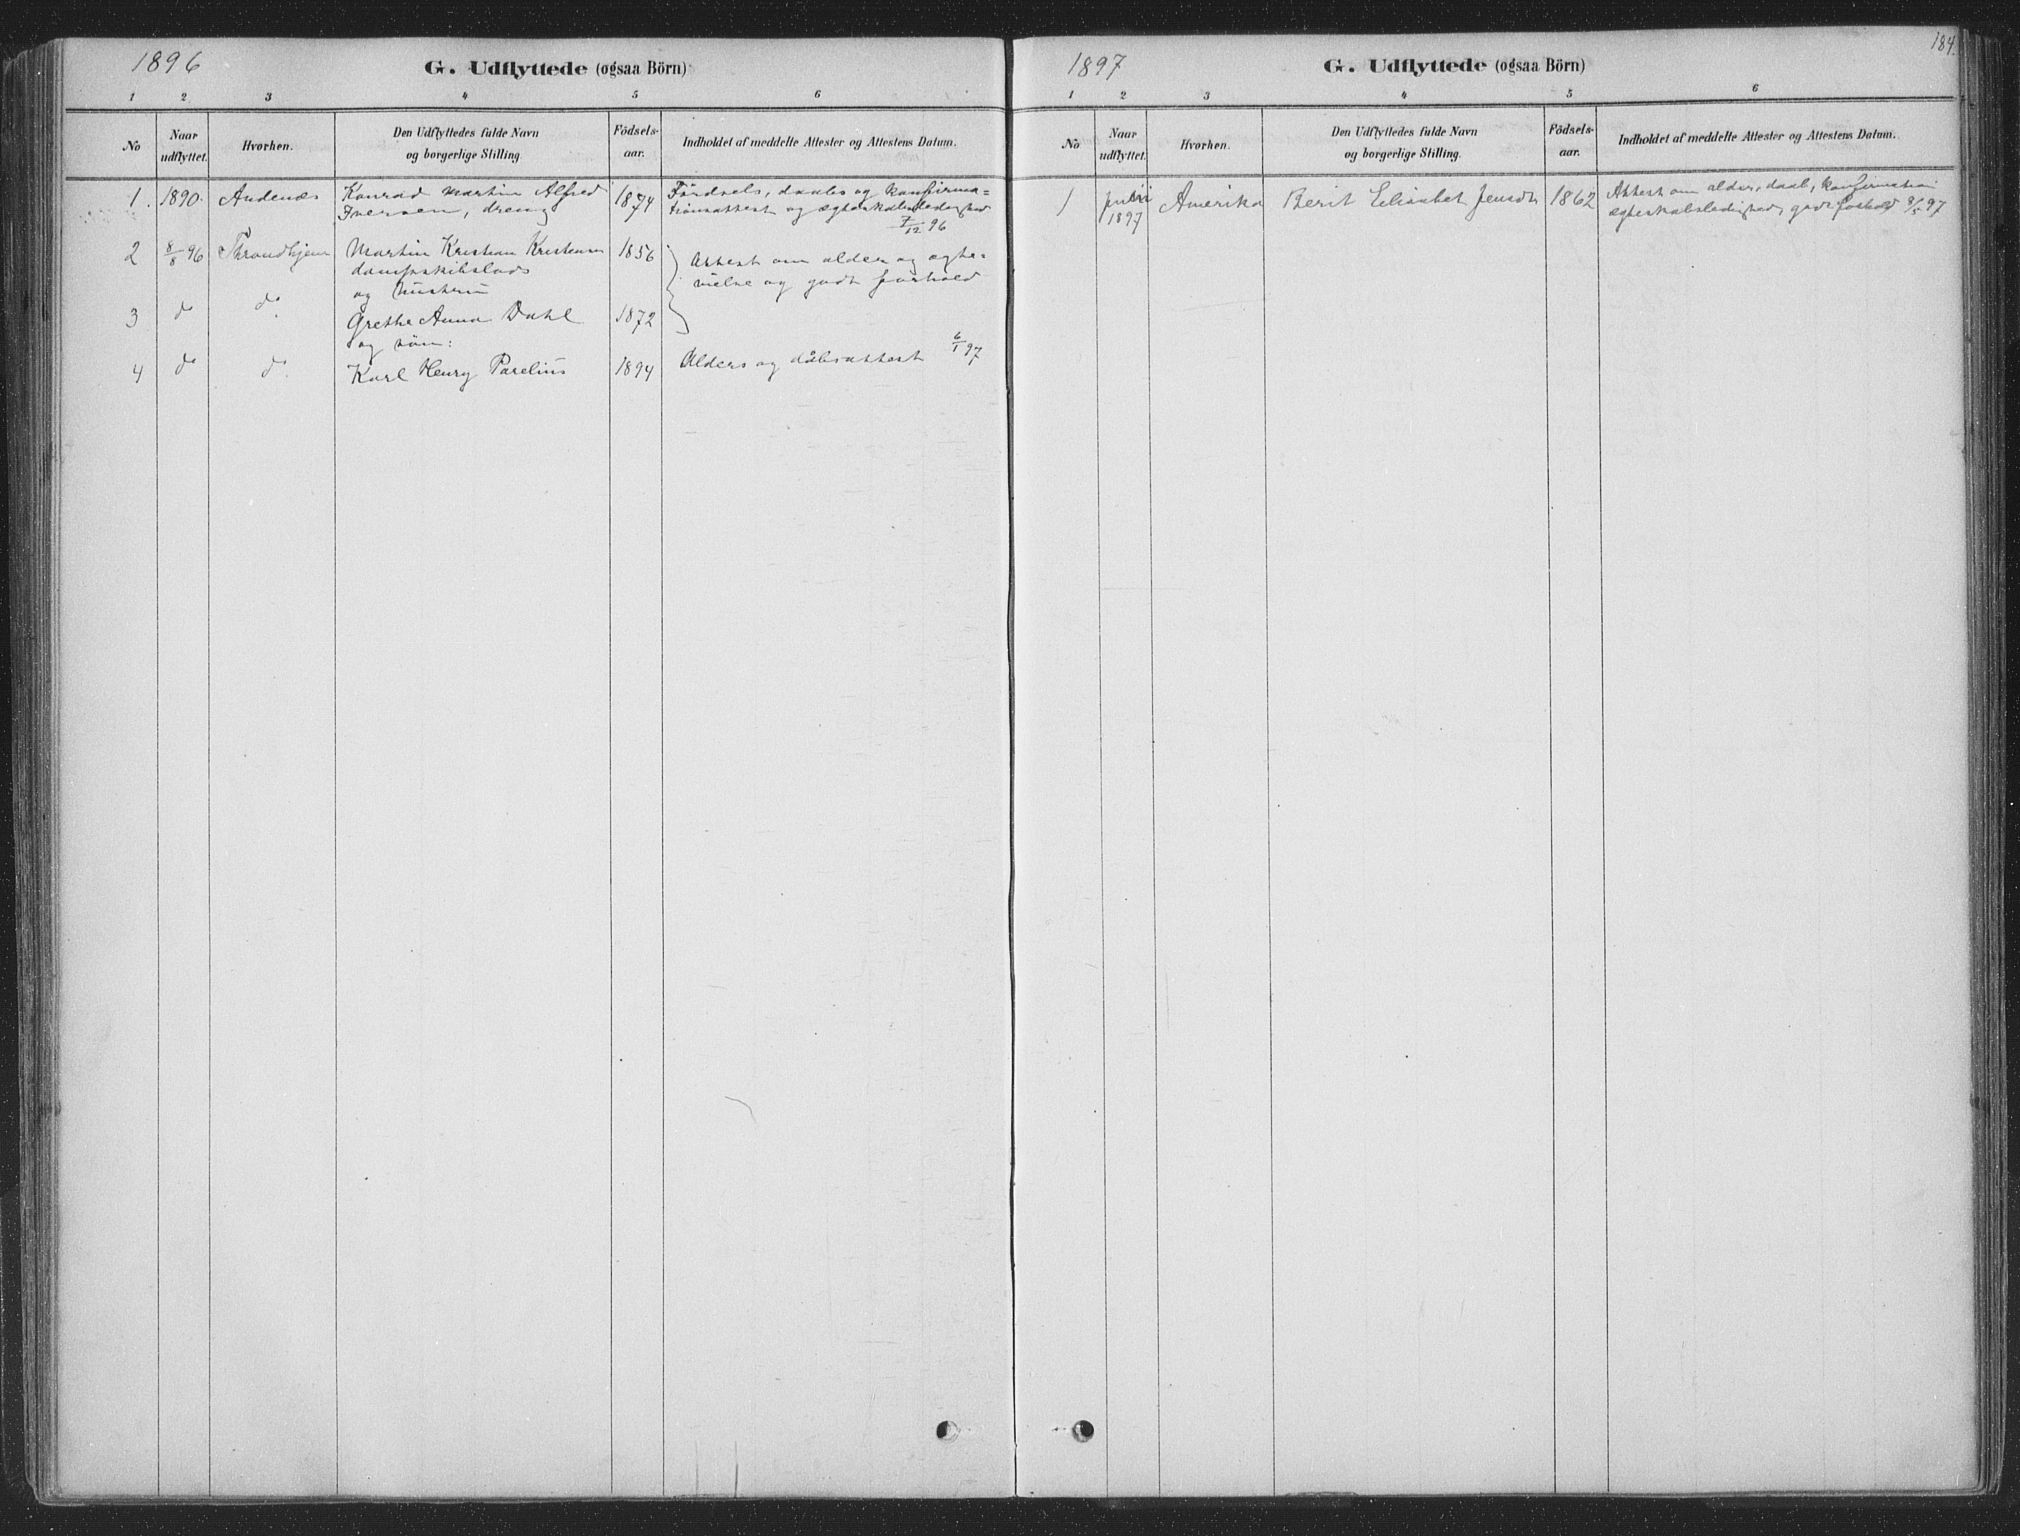 1896
G. Udflyttede (ogsaa Börn)
1 2 3 4 5 6
No
Naar
udflyttet.
Hvorhen.
Den Udflyttedes fulde Navn
og borgerlige Stilling.
Födsels-
aar.
Indholdet af meddelte Attester og Attestens Datum.
1. 1890. Andenæs Konrad Martin Alfred 1874 Fødsels, daabs og konfirma-
Iversen, dreng tionsattest og ægteskabsledighed
7/12 96
2 8/8 96 Throndhjem Martin Kristian Kristensen 1856 Attest om alder og ægte-
dampskibslods vielse og godt forhold
og hustru
3 do do. Grethe Anna Dahl 1872
og søn: 6/1 97
4 do do. Karl Henry Parelius 1894 Alders og dåbsattest
184.
1897
G. Udflyttede (ogsaa Börn)
1 2 3 4 5 6
No
Naar
udflyttet.
Hvorhen.
Den Udflyttedes fulde Navn
og borgerlige Stilling.
Födsels-
aar.
Indholdet af meddelte Attester og Attestens Datum.
1 Amerika Berit Elisabet Jensdt 1862 Attest om alder, daab, konfirmation
1897 ægteskabsledighed, godt forhold 8/5 97